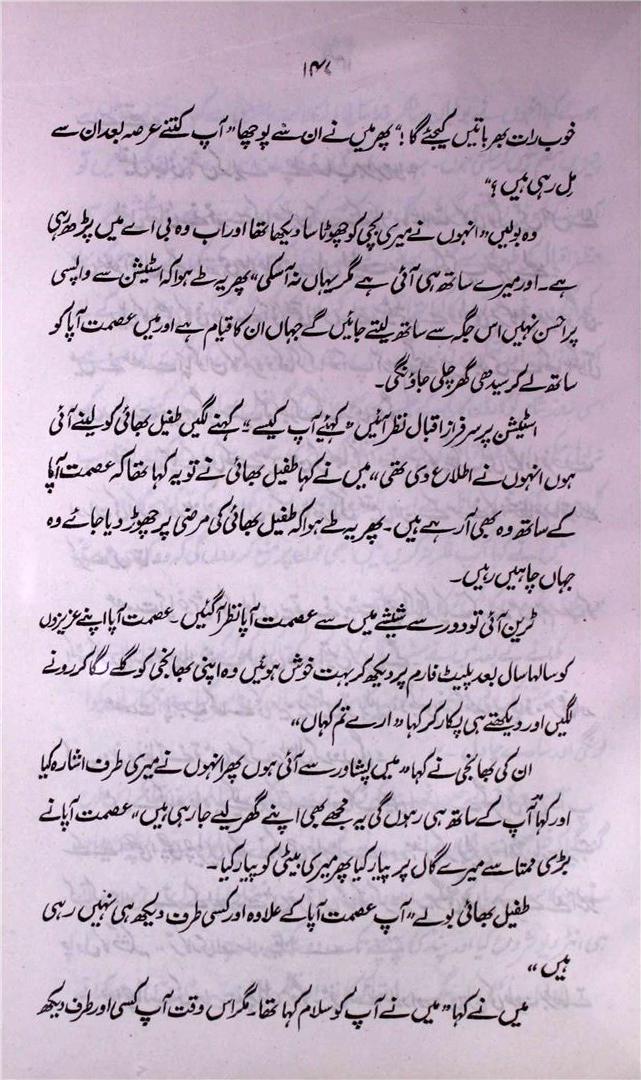 ۱۴۷
خوب رات بھر باتیں کیجئے گا !“ پھر میں نے ان سے پوچھا ” آپ کتنے عرصہ بعد ان سے
مِل رہی ہیں ؟“
وہ بولیں ” انہوں نے میری بچی کو چھوٹا سا دیکھا تھا اور اب وہ بی اے میں پڑھ رہی
ہے ۔ اور میرے ساتھ ہی آئی ہے مگر یہاں نہ آ سکی “ پھر یہ طے ہوا کہ اسٹیشن سے واپسی
پر احسن نہیں اس جگہ سے ساتھ لیتے جائیں گے جہاں ان کا قیام ہے اور میں عصمت آپا کو
ساتھ لے کر سیدھی گھر چلی جاؤنگی ۔
اسٹیشن پر سرفراز اقبال نظر آئیں ” کہئے آپ کیسے “ کہنے لگیں طفیل بھائی کو لینے آئی
ہوں انہوں نے اطلاع دی تھی “ میں نے کہا طفیل بھائی نے تو یہ کہا تھا کہ عصمت آپا
کے ساتھ وہ بھی آ رہے ہیں ۔ پھر یہ طے ہوا کہ طفیل بھائی کی مرضی پر چھوڑ دیا جائے وہ
جہاں چاہیں رہیں ۔
ٹرین آئی تو دور سے شیشے میں سے عصمت آپا نظر آ گئیں ۔ عصمت آپا اپنے عزیزوں
کو سالہا سال بعد پلیٹ فارم پر دیکھ کر بہت خوش ہوئیں وہ اپنی بھانجی کو گلے لگا کر رونے
لگیں اور دیکھتے ہی پکار کر کہا ” ارے تم کہاں “
ان کی بھانجی نے کہا ” میں پشاور سے آئی ہوں پھر انہوں نے میری طرف اشارہ کیا
اور کہا آپ کے ساتھ ہی رہوں گی یہ مجھے بھی اپنے گھر لیے جا رہی ہیں “ عصمت آپا نے
بڑی ممتا سے میرے گال پر پیار کیا پھر میری بیٹی کو پیار کیا ۔
طفیل بھائی بولے ” آپ عصمت آپا کے علاوہ اور کسی طرف دیکھ ہی نہیں رہی
ہیں “
میں نے کہا ” میں نے آپ کو سلام کہا تھا ۔ مگر اس وقت آپ کسی اور طرف دیکھ